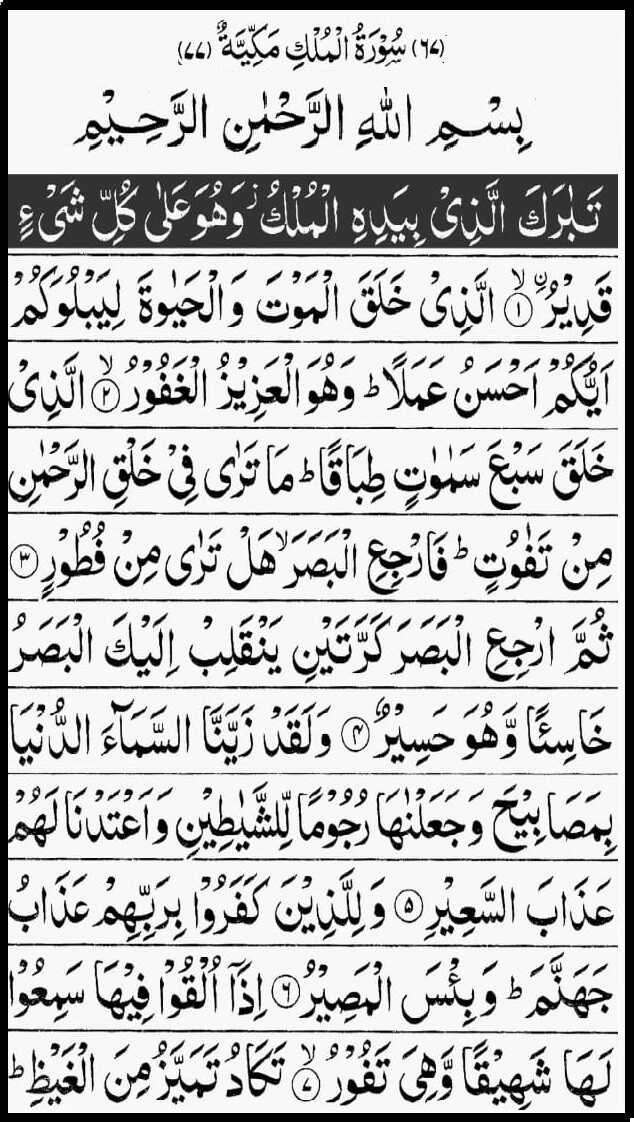 (٦٧) سُوْرَةُ الْمُلْكِ مَكِّيَّةٌ (٧٧)
بِسْمِ اللهِ الرَّحْمٰنِ الرَّحِيْمِ
تَبٰرَكَ الَّذِیْ بِیَدِهِ الْمُلْكُ ؗ وَهُوَ عَلٰی كُلِّ شَیْءٍ
قَدِیْرُ ۨ ۙ﴿۱﴾ الَّذِیْ خَلَقَ الْمَوْتَ وَالْحَیٰوةَ لِیَبْلُوَكُمْ
اَیُّكُمْ اَحْسَنُ عَمَلًا ؕ وَهُوَ الْعَزِیْزُ الْغَفُوْرُ ۙ﴿۲﴾ الَّذِیْ
خَلَقَ سَبْعَ سَمٰوٰتٍ طِبَاقًا ؕ مَا تَرٰی فِیْ خَلْقِ الرَّحْمٰنِ
مِنْ تَفٰوُتٍ ؕ فَارْجِعِ الْبَصَرَ ۙ هَلْ تَرٰی مِنْ فُطُوْرٍ ﴿۳﴾
ثُمَّ ارْجِعِ الْبَصَرَ كَرَّتَیْنِ یَنْقَلِبْ اِلَیْكَ الْبَصَرُ
خَاسِئًا وَّهُوَ حَسِیْرٌ ﴿۴﴾ وَلَقَدْ زَیَّنَّا السَّمَآءَ الدُّنْیَا
بِمَصَابِیْحَ وَجَعَلْنٰهَا رُجُوْمًا لِّلشَّیٰطِیْنِ وَاَعْتَدْنَا لَهُمْ
عَذَابَ السَّعِیْرِ ﴿۵﴾ وَلِلَّذِیْنَ كَفَرُوْا بِرَبِّهِمْ عَذَابُ
جَهَنَّمَ ؕ وَبِئْسَ الْمَصِیْرُ ﴿۶﴾ اِذَاۤ اُلْقُوْا فِیْهَا سَمِعُوْا
لَهَا شَهِیْقًا وَّهِیَ تَفُوْرُ ۙ﴿۷﴾ تَكَادُ تَمَیَّزُ مِنَ الْغَیْظِ ؕ